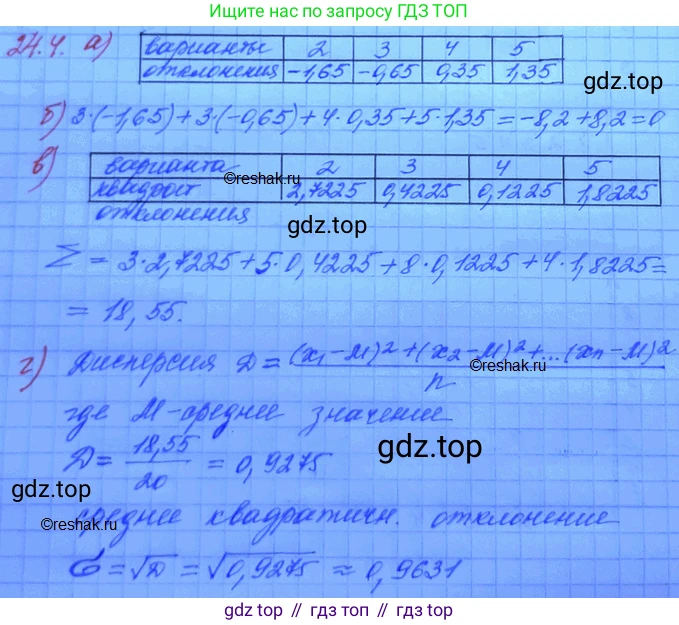 Ищите по запросу ГДЗ ТОП
24.4. а) варианты 2 3 4 5
отклонения -1,65 -0,65 0,35 1,35
gdz.top
б) 3·(-1,65)+3·(-0,65)+4·0,35+5·1,35=-8,2+8,2=0
в) варианта 2 3 4 5
квадрат 2,7225 0,4225 0,1225 1,8225
отклонения
©reshak.ru
gdz.top
Σ = 3·2,7225+5·0,4225+8·0,1225+4·1,8225=
= 18,55.
г) Дисперсия D = (x₁-M)²+(x₂-M)²+...(xn-M)²
n
©reshak.ru
где M-среднее значение
gdz.top
D = 18,55 = 0,9275
20
gdz.top
©reshak.ru
среднее квадратичн. отклонение
σ = √D = √0,9275 ≈ 0,9631
gdz.top // гдз топ // gdz.top